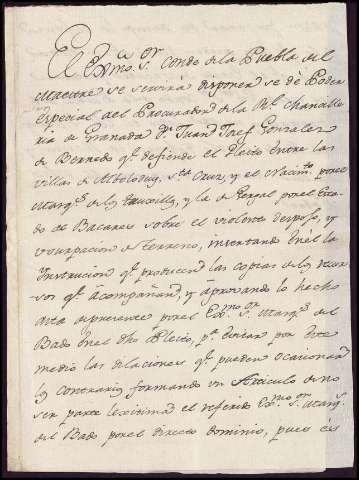 El Exmo. Sor. Conde de la Puebla del
Maestre se servirá disponer se dé Poder
Especial al Procurador de la Rl. Chancille
ria de Granada Dn. Juan Josef Gonzalez
de Bernedo qe. defiende el Pleito entre las
villas de Alboloduy, Sta. Cruz, y el Nacimto. por el
Marqs. de los y la de Gergal por el Esta
do de Bacares sobre el violento despojo, y
usurpacion de terreno, insertando en él la
Instrucion qe. producen las copias de los Recur
sos qe. acompañan, y aprovando lo hecho
asta el presente por el Exmo. Sor. Marqs. del
Bado en el dho Pleito, pa. evitar por este
medio las dilaciones qe. pueden ocasionar
los contrarios formando un Articulo de no
ser parte lexitima el referido Exmo. Sor. Marqs.
del Bado por el directo dominio, pues és